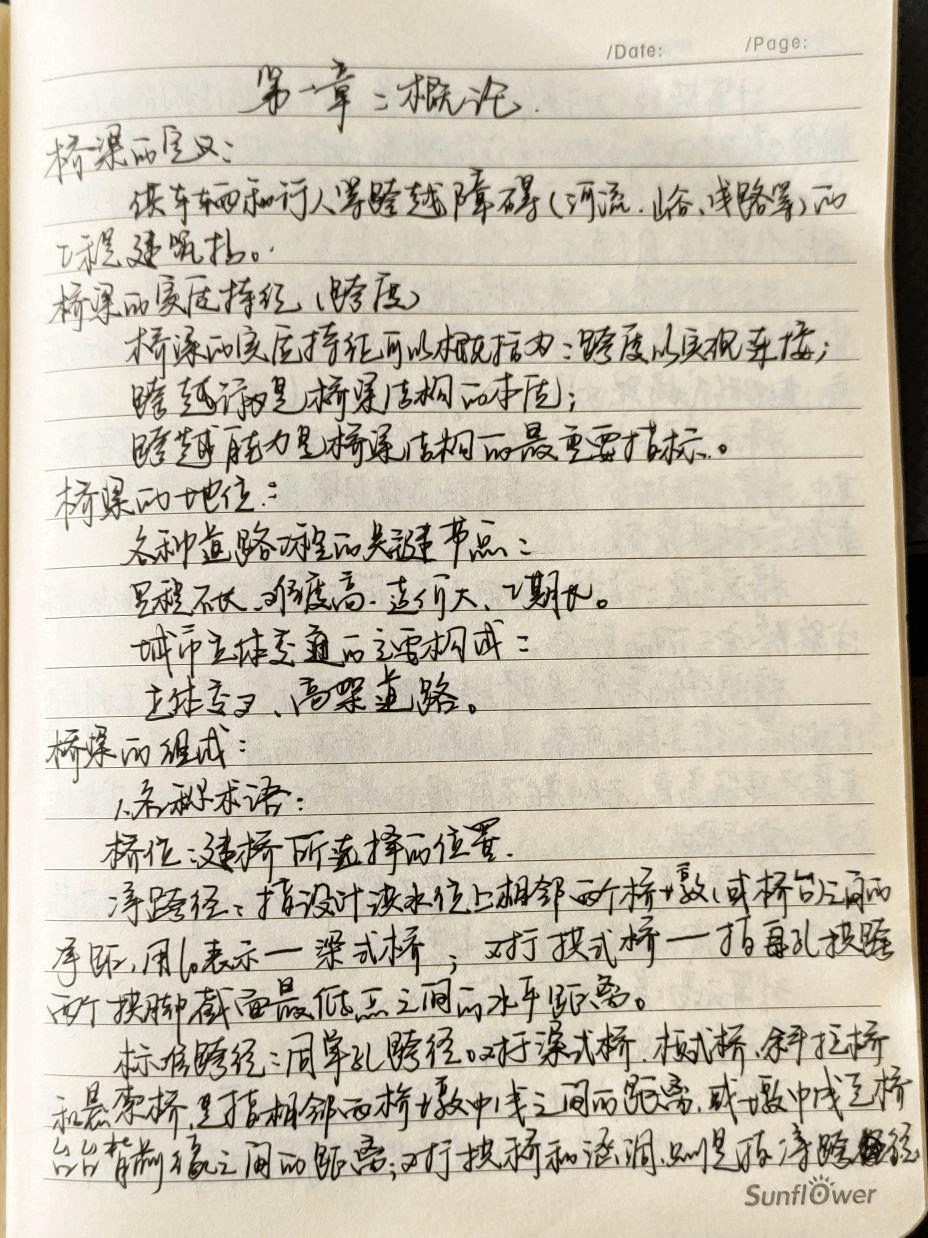 /Date: /Page:
第一章：概论.
桥梁的定义：
供车辆和行人等跨越障碍(河流、山谷、线路等)的
工程建筑物。
桥梁的实质特征(跨度)
桥梁的实质特征可以概括为：跨度以实现连接；
跨越行为是桥梁结构的本质；
跨越能力是桥梁结构的最重要指标。
桥梁的地位：
各种道路工程的关键节点：
里程不长、难度高、造价大、工期长。
城市立体交通的主要构成：
立体交叉、高架道路。
桥梁的组成：
1、名称术语：
桥位：建桥所选择的位置.
净跨径：指设计洪水位上相邻两个桥墩(或桥台)之间的
净距，用l₀表示一梁式桥；对于拱式桥一指每孔拱跨
两个拱脚截面最低点之间的水平距离。
标准跨径：同单孔跨径。对于梁式桥、板式桥、斜拉桥
和悬索桥，是指相邻两桥墩中线之间的距离，或墩中线至桥
台台背前缘之间的距离；对于拱桥和涵洞，则是指净跨径
Sunflower